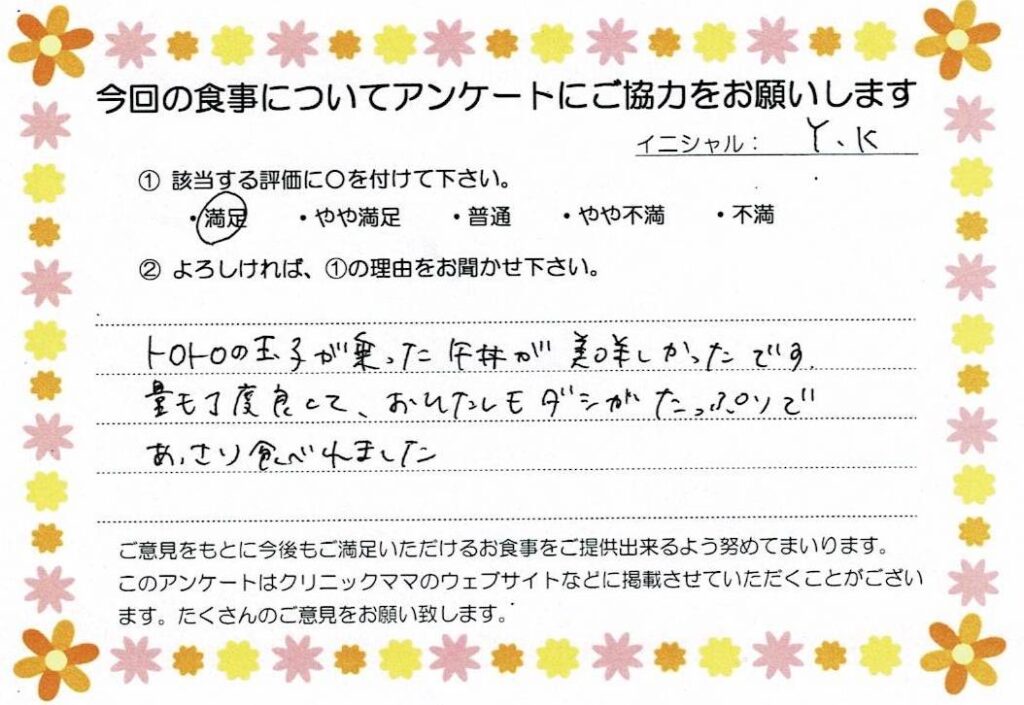 今回の食事についてアンケートにご協力をお願いします
イニシャル： Y、K
① 該当する評価に〇を付けて下さい。
・満足 ・やや満足 ・普通 ・やや不満 ・不満
② よろしければ、①の理由をお聞かせ下さい。
トロトロの玉子が乗った牛丼が美味しかったです。
量も丁度良くて、おひたしもダシがたっぷりで
あっさり食べれました
ご意見をもとに今後もご満足いただけるお食事をご提供出来るよう努めてまいります。
このアンケートはクリニックママのウェブサイトなどに掲載させていただくことがござい
ます。たくさんのご意見をお願い致します。